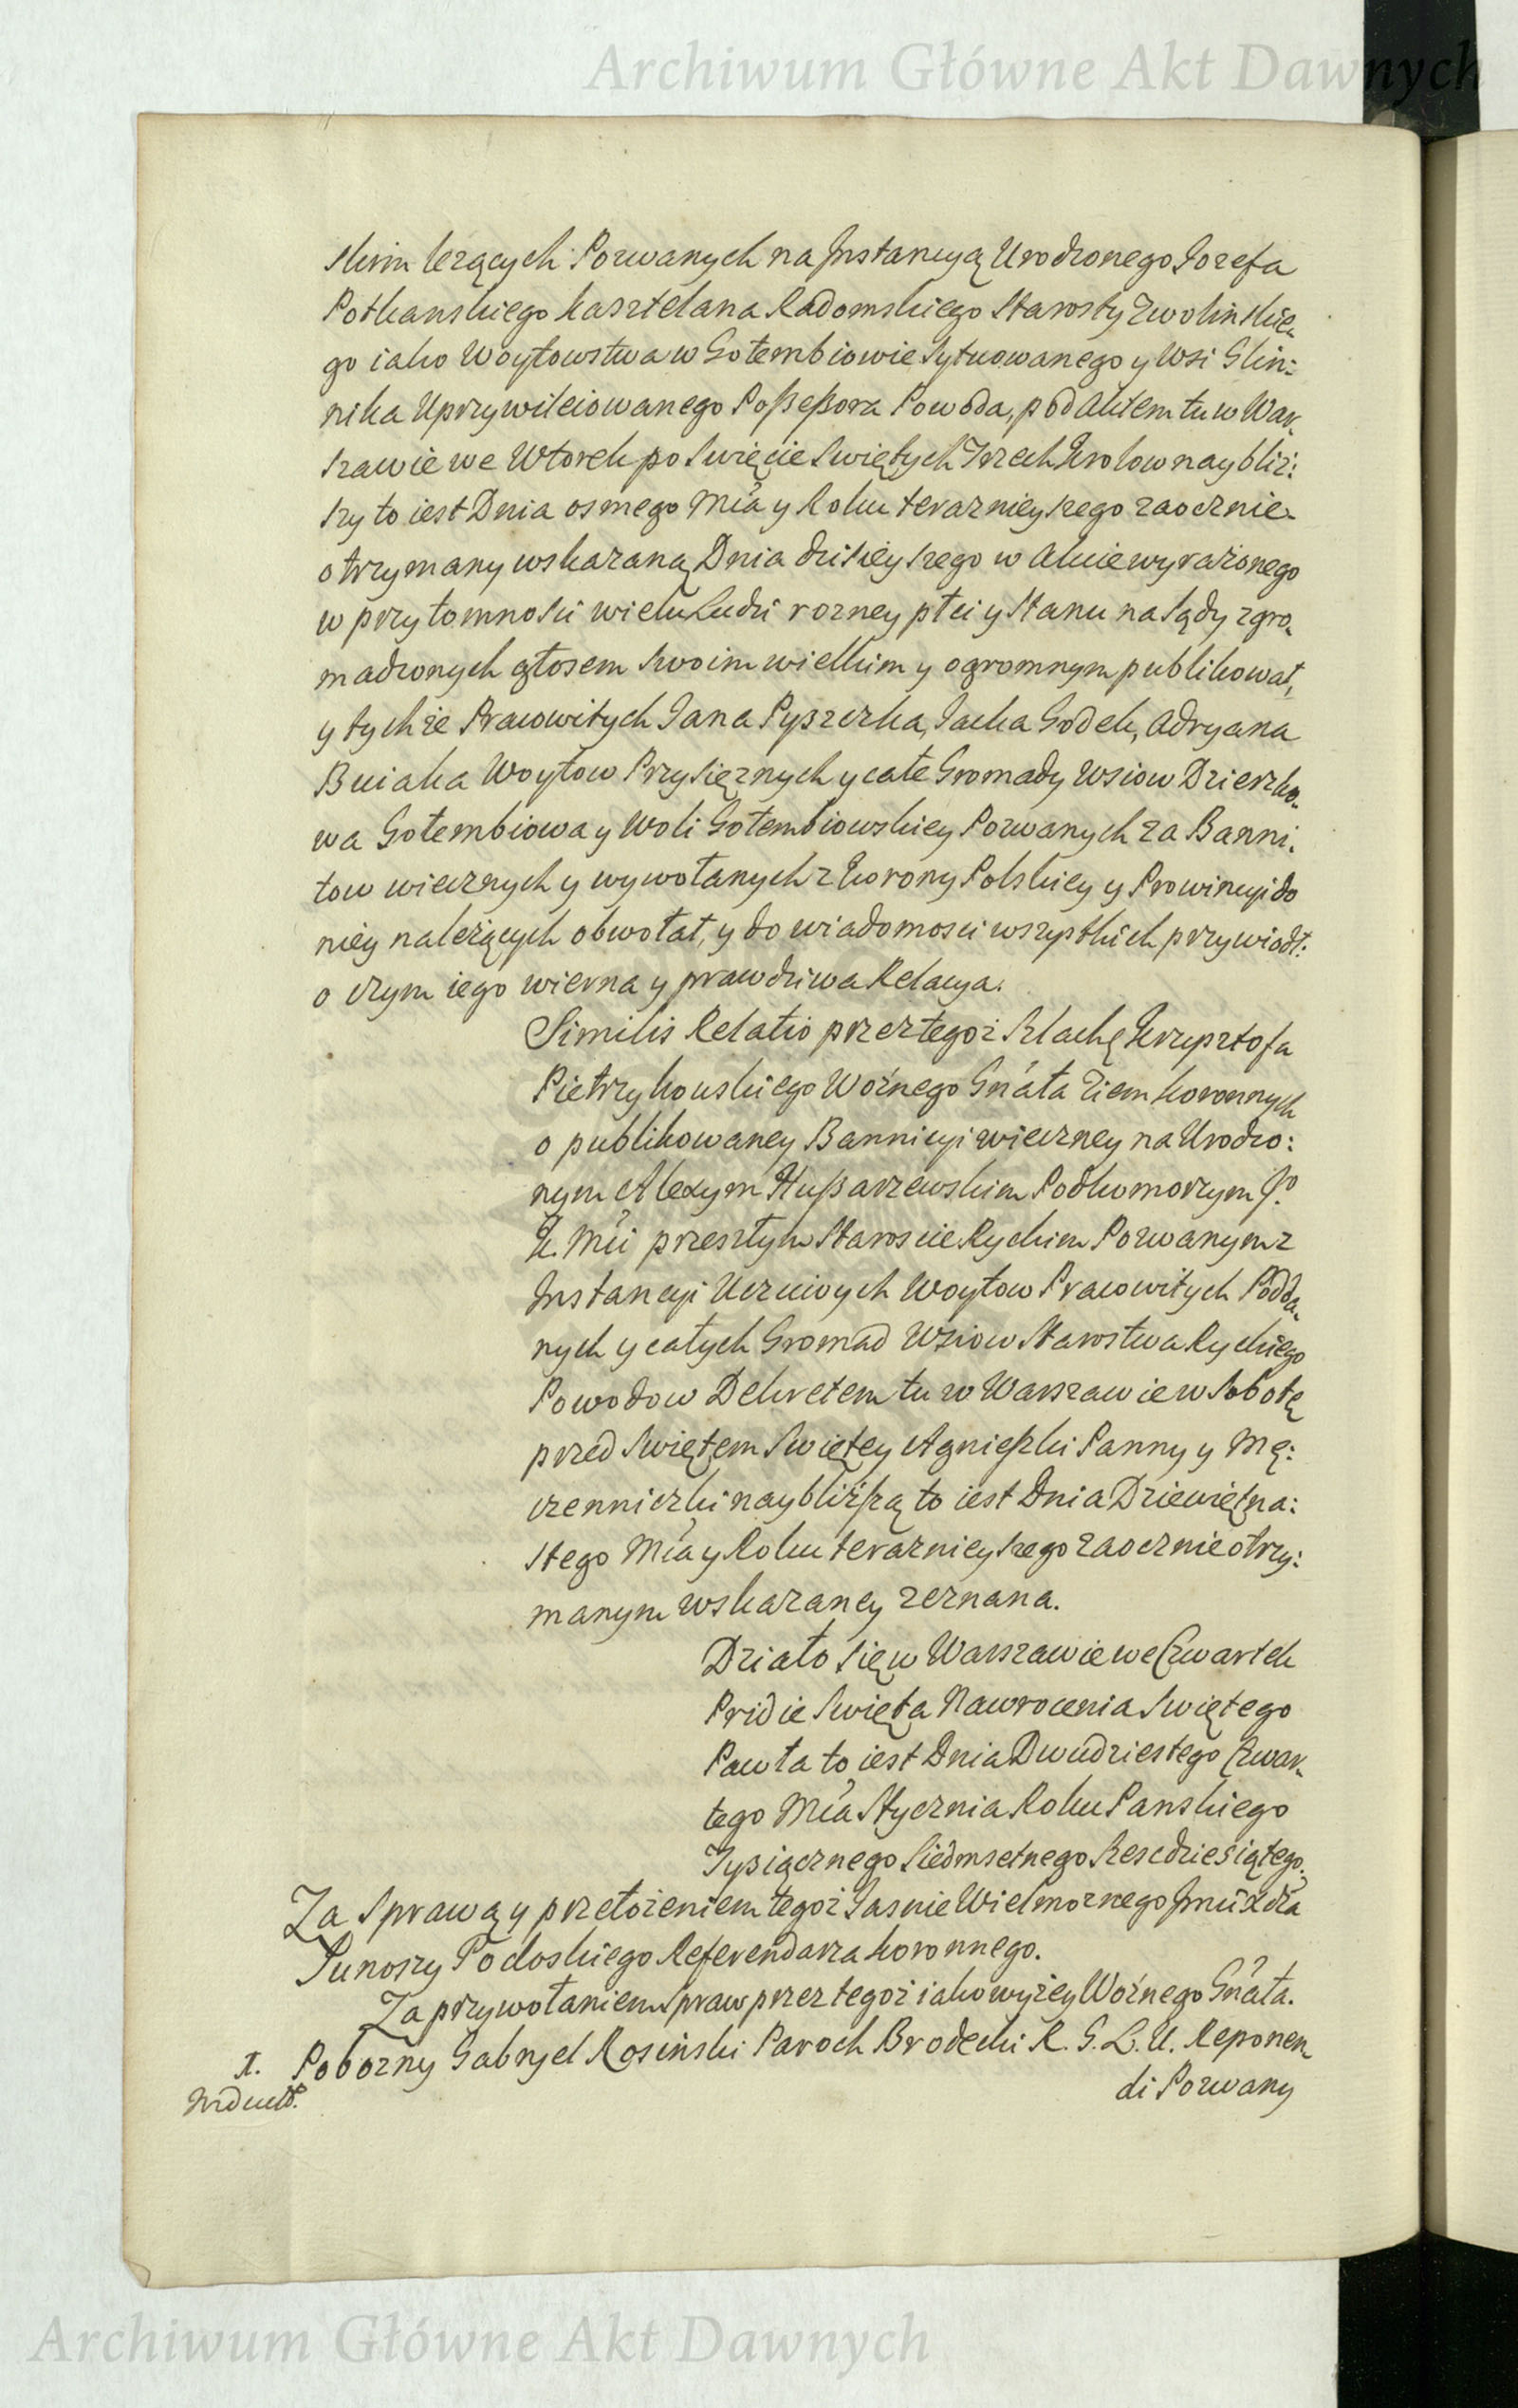 Archiwum Główne Akt Dawnych
skim leżących Pozwanych na Instancyą Urodzonego Jozefa
Potkanskiego Kasztelana Radomskiego Starosty Zwolinskie-
go iako Woytowstwa w Gołembiowie Sytuowanego y Wsi Glin:
nika Uprzywileiowanego Poßeßora Powoda, pod Aktem tu w War-
szawie we Wtorek po Swięcie Swiętych Trzech Krolow naybliż:
szy to iest Dnia osmego Mca y Roku teraznieyszego zaocznie
otrzymany wskazaną Dnia dzisieyszego w Akcie wyrażonego
w przytomnosci wielu Ludzi rozney płci y Stanu na Sądy zgro-
madzonych głosem swoim wielkim y ogromnym publikował,
y tychże Pracowitych Jana Pyszczka, Jacka Godek, Adryana
Buiaka Woytow Przysięznych y całe Gromady Wsiow Dzierzko-
wa Gołembiowa y Woli Gołembiowskiey Pozwanych za Banni-
tow wiecznych y wywołanych z Korony Polskiey y Prowincyi do
niey należących obwołał, y do wiadomosci wszystkich przywiodł:
o czym iego wierna y prawdziwa Relacya.
Similis Relatio przez tegoż Szlachę Krzysztofa
Pietrzykowskiego Woźnego Gnáła Ziem Koronnych
o publikowaney Bannicyi wieczney na Urodzo:
nym Alexym Hußarzewskim Podkomorzym J.o
K. Mci przeszłym Staroscie Ryckim Pozwanym z
Instancyi Uczciwych Woytow Pracowitych Podda-
nych y całych Gromad Wsiow Starostwa Ryckiego
Powodow Dekretem tu w Warszawie w Sobotę
przed Swiętem Swiętey Agnieszki Panny y Mę:
czenniczki naybliższą to iest Dnia Dziewiętna:
stego Mca y Roku teraznieyszego zaocznie otrzy:
manym wskazaney zeznana.
Działo się w Warszawie we Czwartek
Pridie Swięta Nawrocenia Swiętego
Pawła to iest Dnia Dwudziestego Czwar-
tego Mca Stycznia Roku Panskiego
Tysiącznego Siedmsetnego Szescdziesiątego.
Za Sprawą y przełożeniem tegoż Jasnie Wielmoznego Jmci Xdza
Junoszy Podoskiego Referendarza Koronnego.
Za przywołaniem Spraw przez tegoż iako wyżey Woźnego Gnáła.
I. Pobozny Gabryel Rosiński Paroch Brodecki R. G. L. U. Reponen-
Induct.
di Pozwany
Archiwum Główne Akt Dawnych